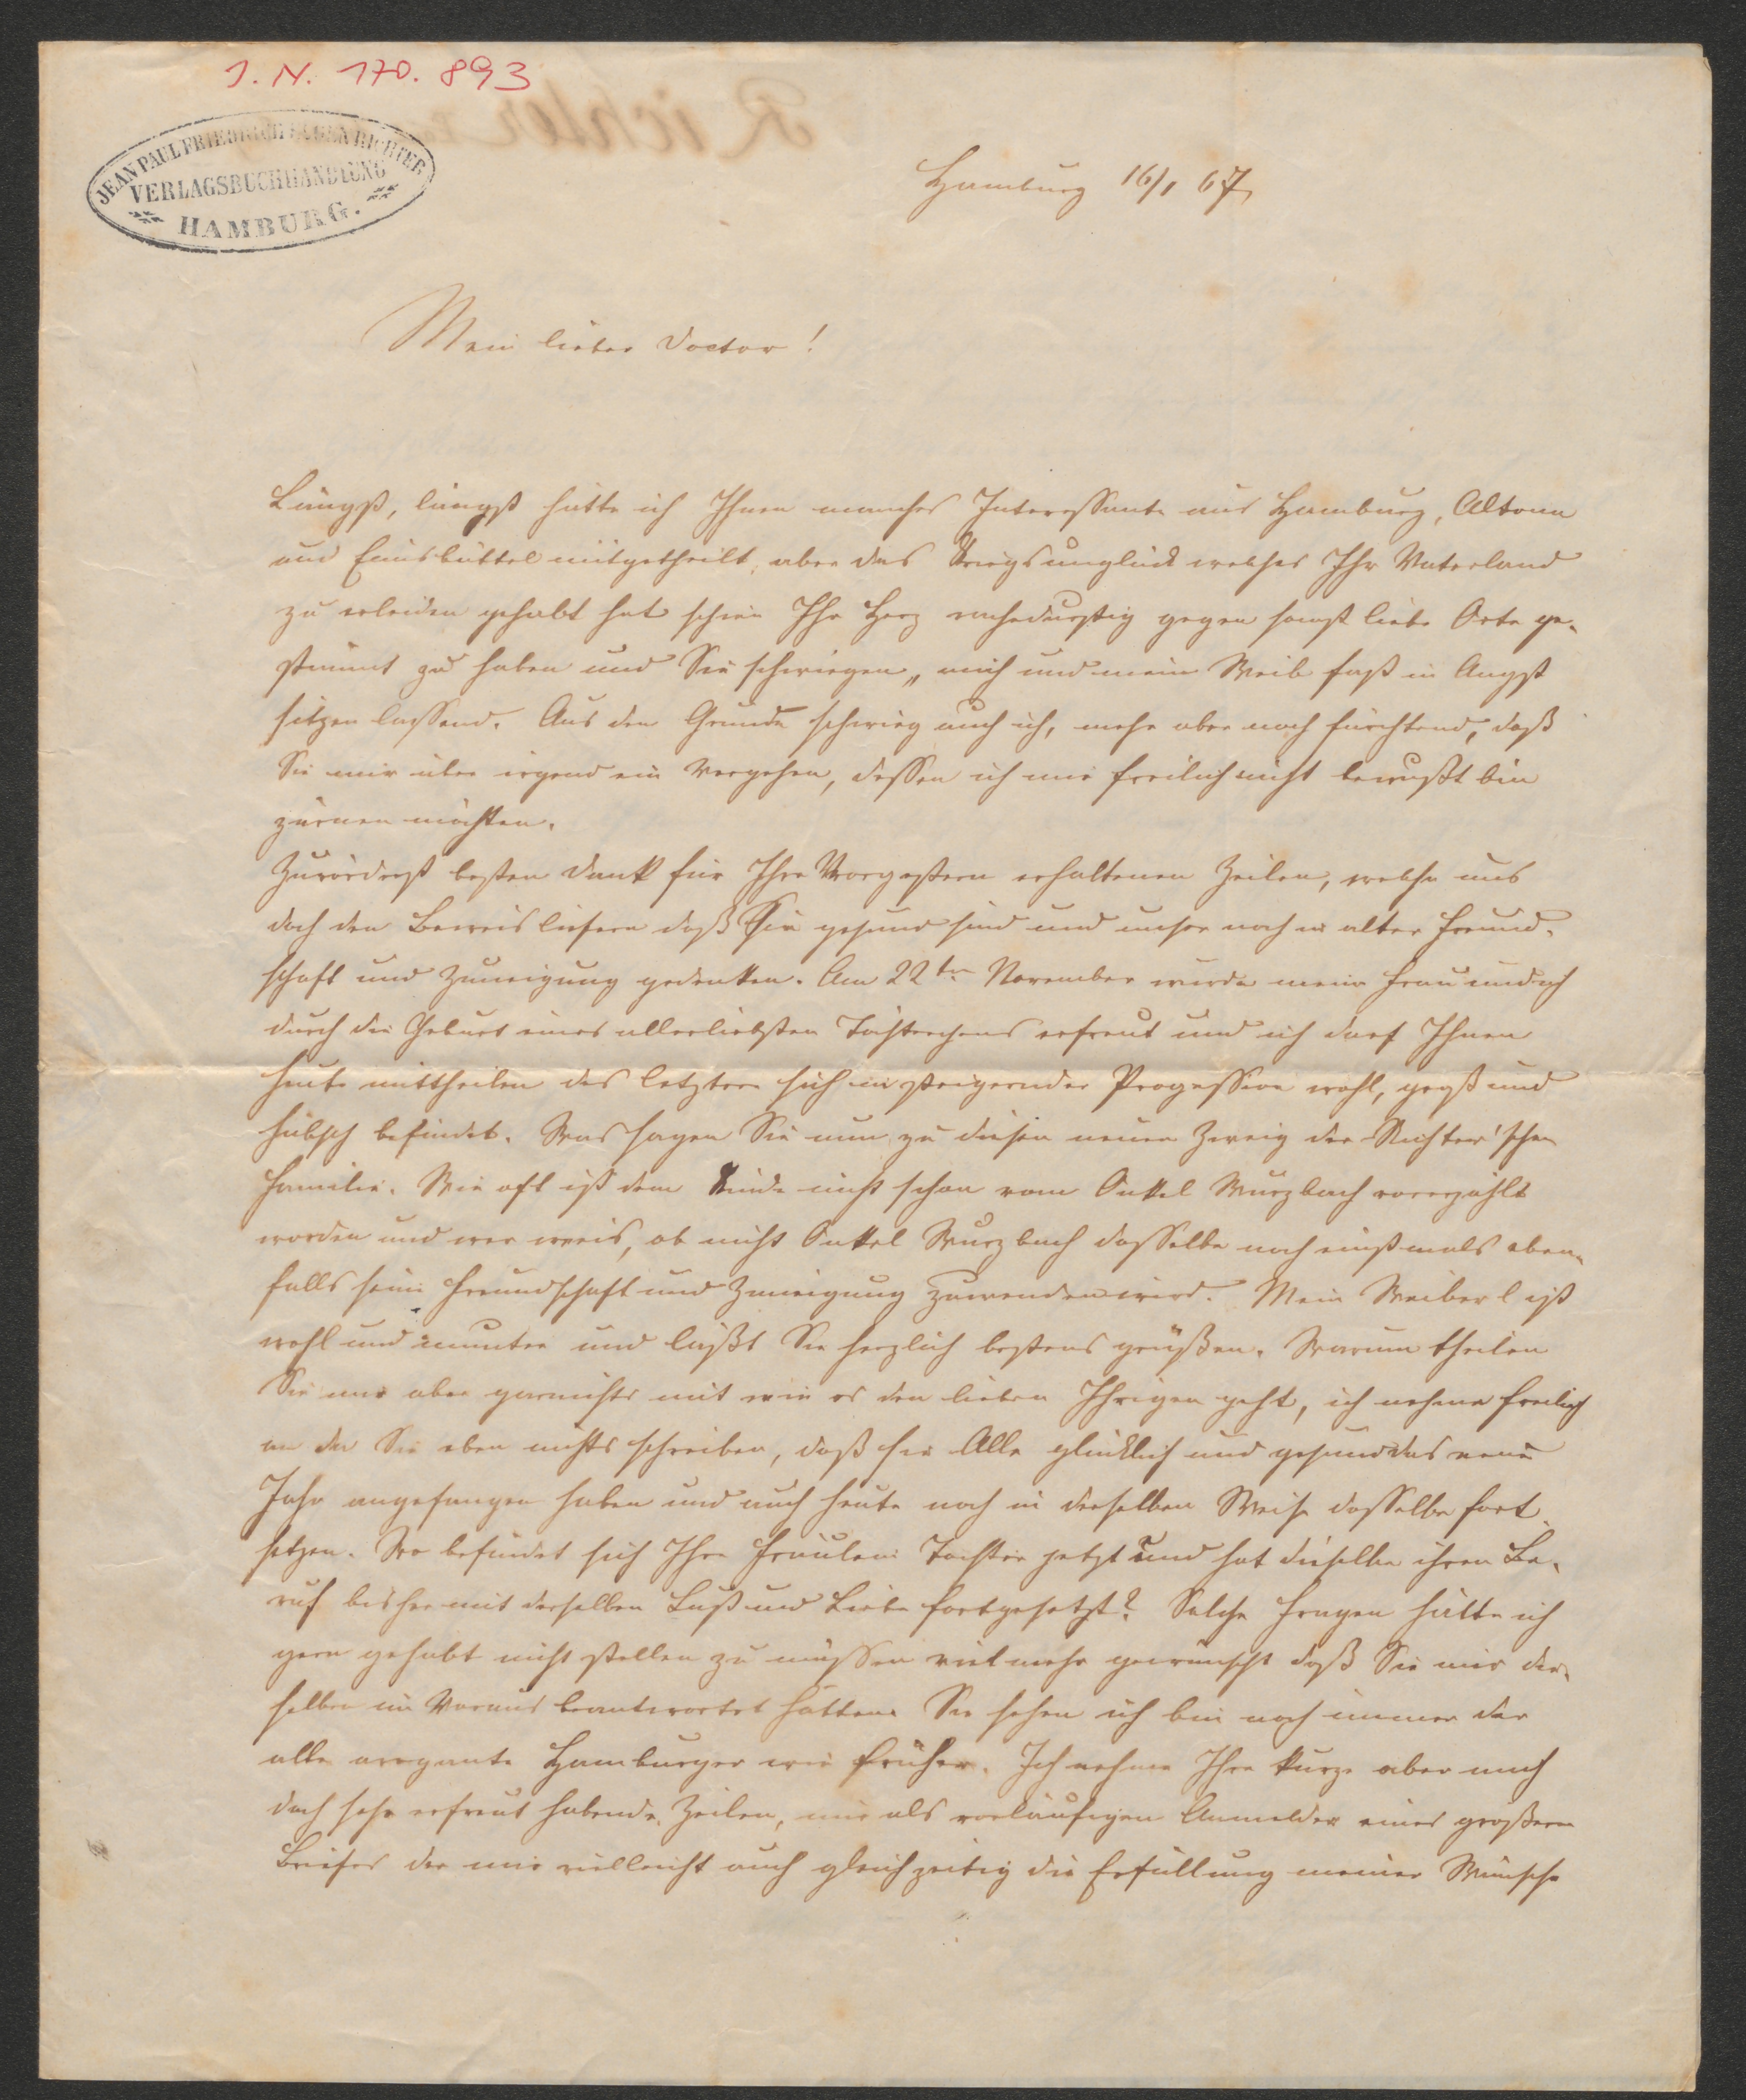 J. N. 170.893
JEAN PAUL FRIEDRICH EUGEN RICHTER
VERLAGSBUCHHANDLUNG
HAMBURG.
Richter
Hamburg 16/1 67
Mein lieber Doctor!
Längst, längst hätte ich Ihnen manches Interessante aus Hamburg, Altona
und Eimsbüttel mitgetheilt, aber das Kriegsunglück welches Ihr Vaterland
zu erleiden gehabt hat schien Ihr Herz rachedurstig gegen sonst liebe Orte ge-
stimmt zu haben und Sie schwiegen, mich und mein Weib fast in Angst
sitzen lassend. Aus dem Grunde schwieg auch ich, mehr aber noch fürchtend, daß
Sie mir über irgend ein Vergehen, dessen ich mir freilich nicht bewußt bin
zürnen möchten.
Zuvörderst besten Dank für Ihre Vorgestern erhaltenen Zeilen, welche uns
doch den Beweis liefern daß Sie gesund sind und unser noch in alter Freund-
schaft und Zuneigung gedenken. Am 22ten November wurde meine Frau und ich
durch die Geburt eines allerliebsten Töchterchens erfreut und ich darf Ihnen
heute mittheilen das letztere sich in steigender Progession wohl, groß und
hübsch befindet. Was sagen Sie nun zu diesem neuen Zweig der Richter'schen
Familie. Wie oft ist dem Kinde nicht schon vom Onkel Wurzbach vorerzählt
worden und wer weis, ob nicht Onkel Wurzbach dasselbe noch einstmals eben-
falls seine Freundschaft und Zuneigung zuwenden wird. Mein Weiberl ist
wohl und munter und läßt Sie herzlich bestens grüßen. Warum theilen
Sie uns aber garnichts mit wie es den lieben Ihrigen geht, ich nehme freilich
an da Sie eben nichts schreiben, daß sie Alle glücklich und gesund das neue
Jahr angefangen haben und auch heute noch in derselben Weise dasselbe fort-
setzen. Wo befindet sich Ihre Fräulein Tochter jetzt und hat dieselbe ihren Be-
ruf bisher mit derselben Lust und Liebe fortgesetzt? Solche Fragen hätte ich
gern gehabt nicht stellen zu müssen vielmehr gewünscht daß Sie mir die-
selben im Voraus beantwortet hätten. Sie sehen ich bin noch immer der
alte arogante Hamburger wie früher. Ich nehme Ihre kurze aber mich
doch sehr erfreut habende Zeilen, nur als vorläufigen Anmelder eines großern
Briefes der mir vielleicht auch gleichzeitig die Erfüllung meiner Wünsche